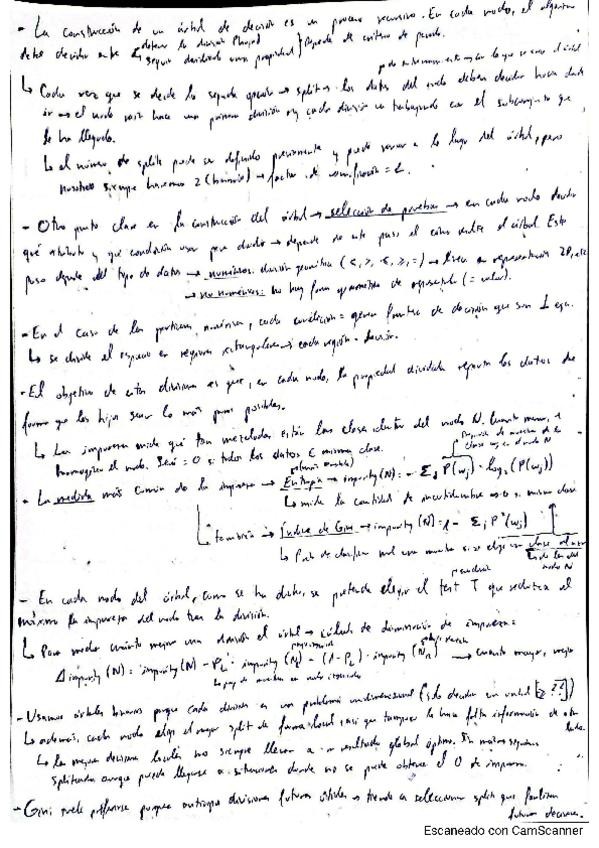 - La construcción de un árbol de decisión es un proceso recursivo. En cada nodo, el algoritmo
debe decidir entre detener la división
seguir dividiendo una propiedad } Depende de criterio de parada.
↳ Cada vez que se decide la segunda opción → split → los datos del nodo deben decidir hacia dónde
ir → el nodo raíz hace una primera división y cada división va trabajando con el subconjunto que
le ha llegado.
↳ el número de splits puede ser definido previamente y puede variar a lo largo del árbol, pero
nosotros siempre haremos 2 (binario) → factor de ramificación = 2.
- Otro punto clave en la construcción del árbol → selección de pruebas → en cada nodo decidir
qué atributo y qué condición usar para dividir → depende de este paso el cómo el árbol. Este
paso depende del tipo de datos → numéricos: división geométrica (<, >, ≤, ≥, =) → línea en representación 2D, etc
→ no numéricos: no hay forma geométrica de representar (= valor).
- En el caso de las particiones numéricas, cada condición genera frontera de decisión que son ⊥ ejes.
↳ se divide el espacio en regiones rectangulares cada región = decisión.
- El objetivo de estas divisiones es que, en cada nodo, la propiedad dividida reparta los datos de
forma que los hijos sean lo más puros posibles.
↳ La impureza mide qué tan mezcladas están las clases dentro del nodo N. Cuanto menor, +
homogéneo el nodo. Será = 0 si todos los datos ∈ misma clase.
- La medida más común de la impureza → Entropía → impurity(N) = - Σj P(wj) · log2 (P(wj))
↳ mide la cantidad de incertidumbre
↳ También → Índice de Gini → impurity(N) = 1 - Σj P²(wj)
- En cada nodo del árbol, como se ha dicho, se pretende elegir el test T que reduzca al
máximo la impureza del nodo tras la división.
↳ Para medir cuánto mejora una división el árbol → cálculo de disminución de impureza:
Δ impurity(N) = impurity(N) - PL · impurity(NL) - (1 - PL) · impurity(NR) → cuanto mayor, mejor
- Usamos árboles binarios porque cada división es un problema unidimensional (solo decidir un umbral
↳ además, cada nodo elige el mejor split de forma local, así que tampoco le hace falta información de otros
↳ las mejores decisiones locales no siempre llevan a un resultado global óptimo. Sin más seguimos
splitando aunque puede llegarse a situaciones donde no se puede obtener el 0 de impureza.
- Gini suele preferirse porque anticipa divisiones futuras útiles → tiende a seleccionar split que facilitan
futuras decisiones.
Escaneado con CamScanner